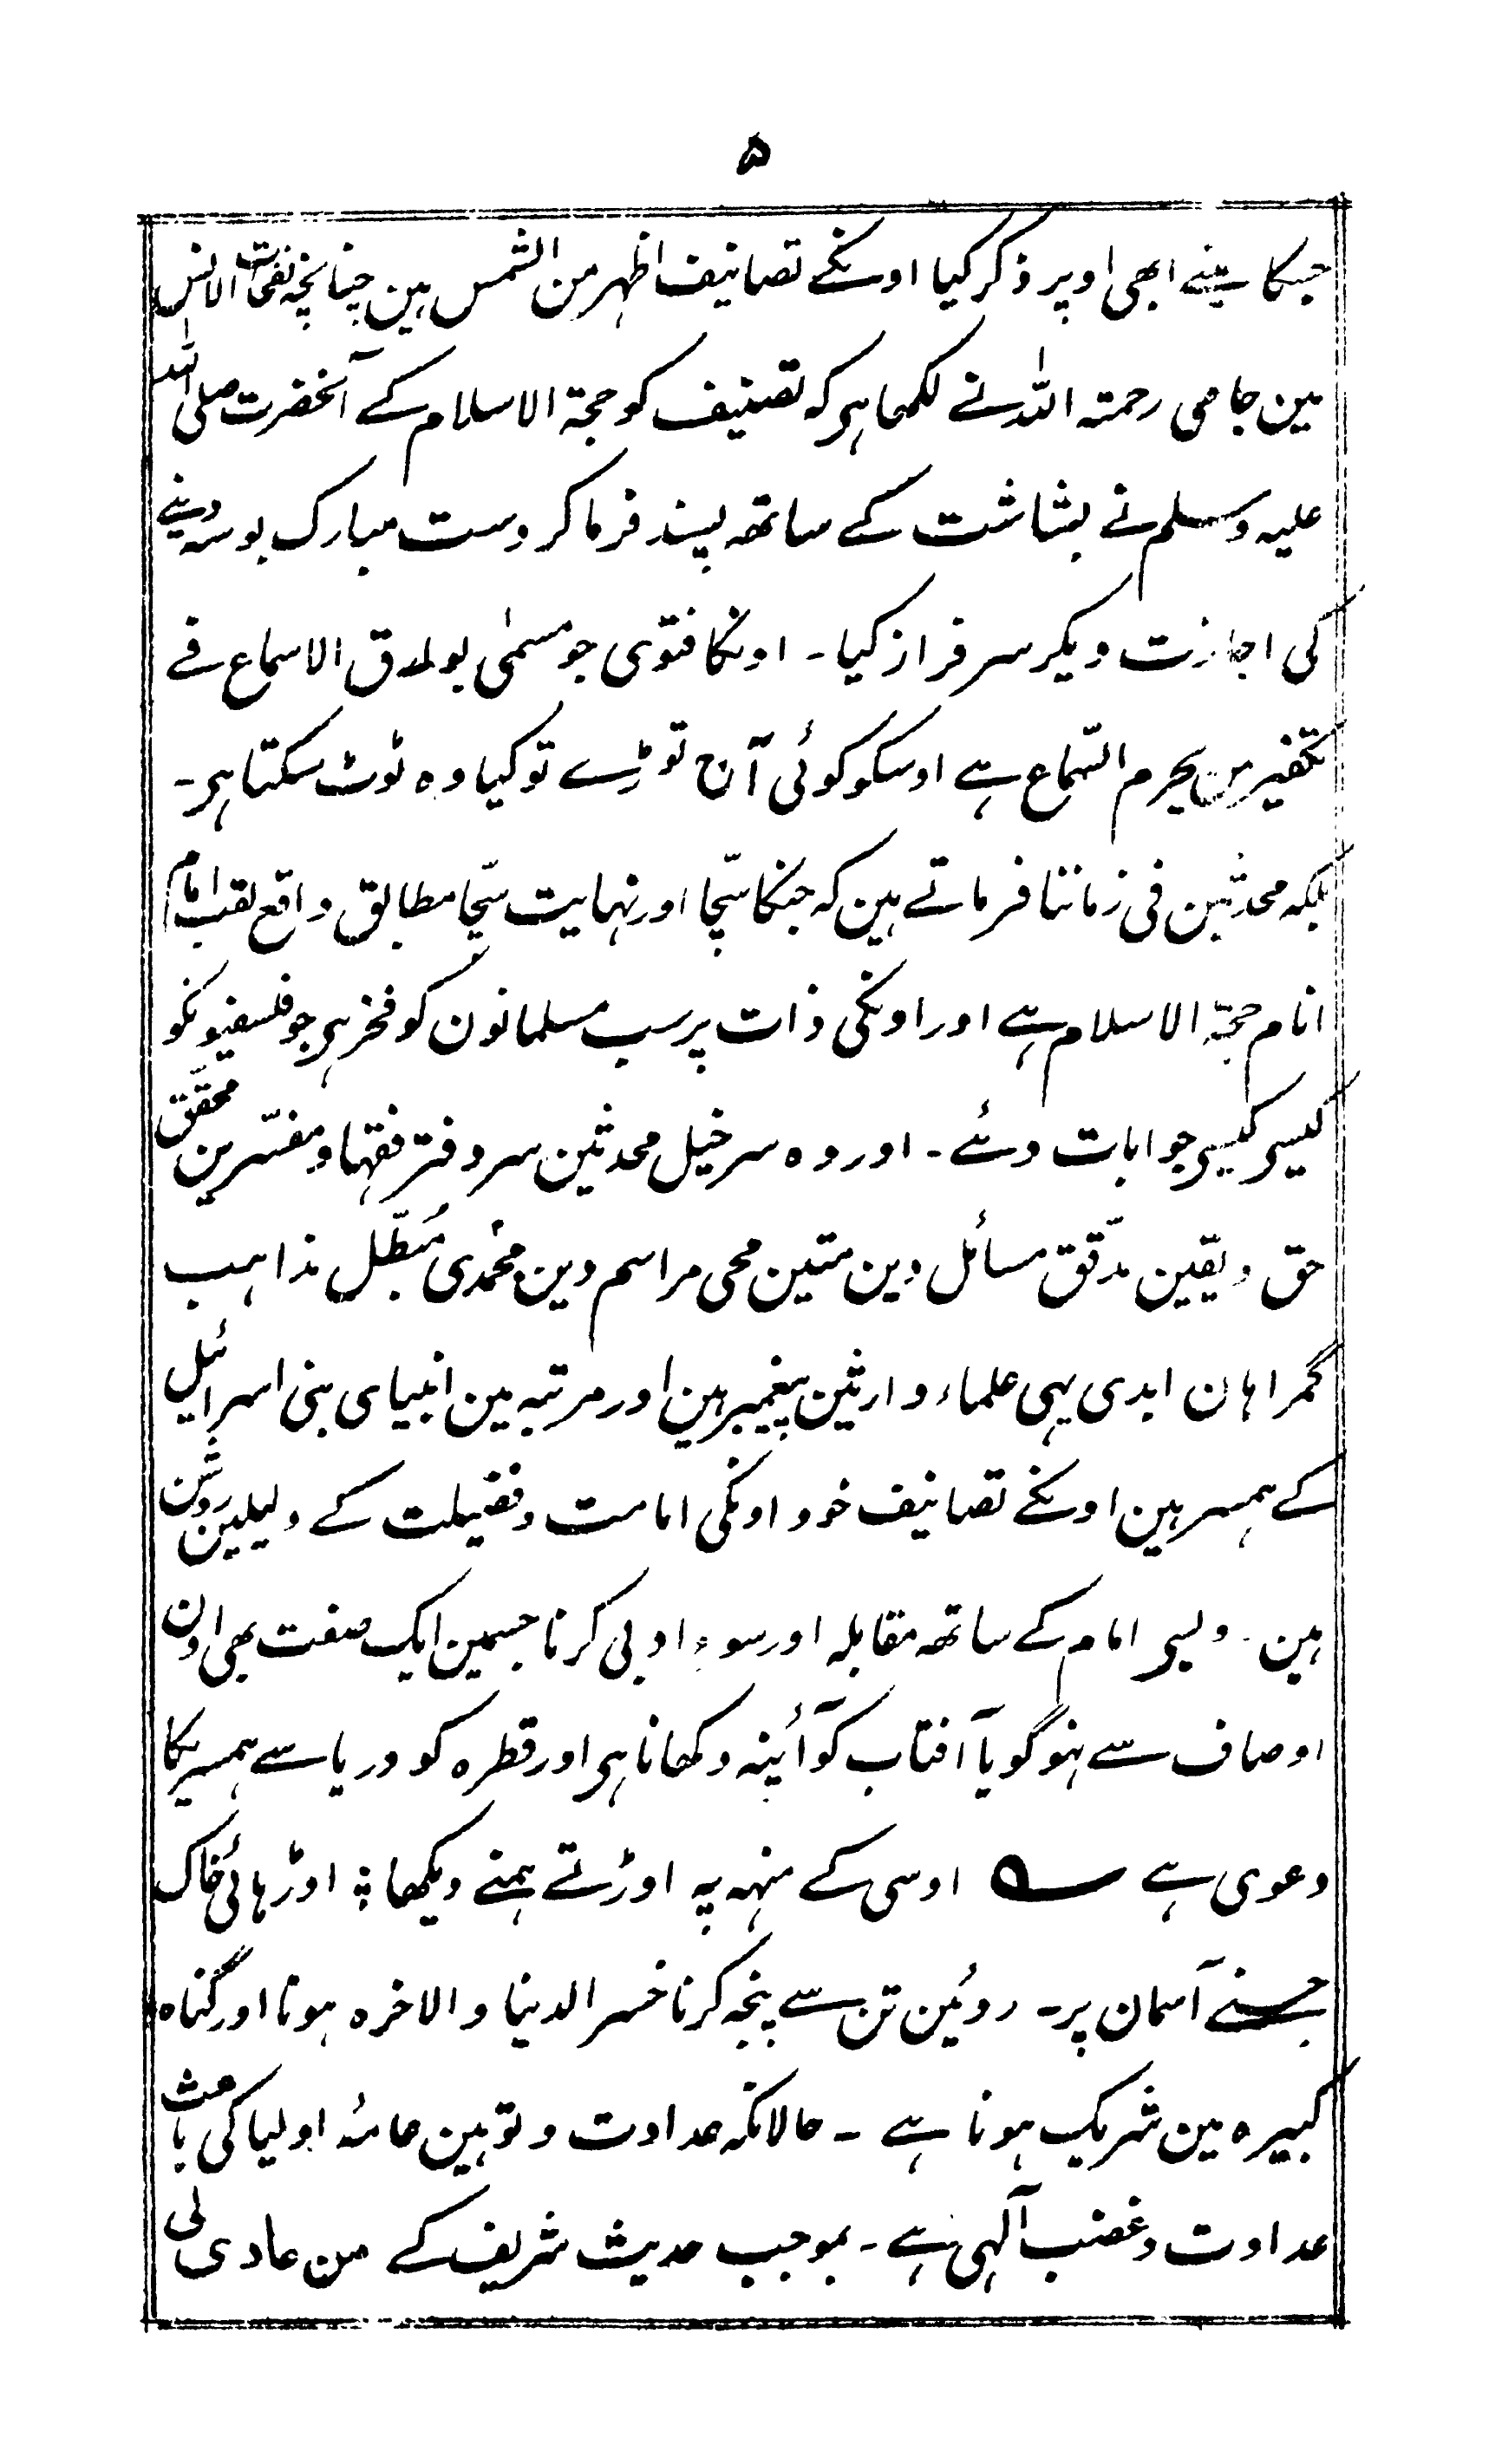 ۵
جسکا مینے ابھی اوپر ذکر کیا اونکے تصانیف اظہر من الشمس ہین چنانچہ نفحات الانس
مین جامی رحمتہ اللہ نے لکھا ہی کہ تصنیف کو حجۃ الاسلام کے آنحضرت صلی اللہ
علیہ وسلم نے بشاشت کے ساتھہ پسند فرما کر دست مبارک بوسہ دینے
کی اجازت دیکر سرفراز کیا۔ اونکا فتوی جو مسمٰی بوارق الاسماع فے
تکفیر من یحرم السّماع ہے اوسکو کوئی آن توڑے تو کیا وہ ٹوٹ سکتا ہی۔
بلکہ محدثین فی زماننا فرماتے ہین کہ جنکا سچّا اور نہایت سچّا مطابق واقع لقب امام
انام حجۃ الاسلام ہے اور اونکی ذات پر سب مسلمانون کو فخر ہی جو فلسفیونکو
کیسی کیسی جوابات دئے۔ اور وہ سرخیل محدثین سر دفتر فقہا و مفسّرین محقّق
حق و یقین مدقّق مسائل دین متین محی مراسم دین محمّدی مُبطّل مذاہب
گمراہان ابدی یہی علماء وارثین پیغمبر ہین اور مرتبہ مین انبیای بنی اسرائیل
کے ہمسر ہین اونکے تصانیف خود اونکی امامت و فضیلت کے دلیلین روشن
ہین۔ ویسی امام کے ساتھہ مقابلہ اور سوء ادبی کرنا جسمین ایک صفت بھی اون
اوصاف سے نہو گویا آفتاب کو آئینہ دکھانا ہی اور قطرہ کو دریا سے ہمسریکا
دعوی ہے ؎ اوسی کے منہہ پہ اوڑتے ہمنے دیکھا ؛ اوڑہائی خاک
جسنے آسمان پر۔ روئین تن سے پنجہ کرنا خسر الدنیا والاخرہ ہونا اور گناہ
کبیرہ مین شریک ہونا ہے ۔ حالانکہ عداوت و توہین عامۂ اولیا کی باعث
عداوت و غضب آلہی ہے۔ بموجب حدیث شریف کے من عادی لی